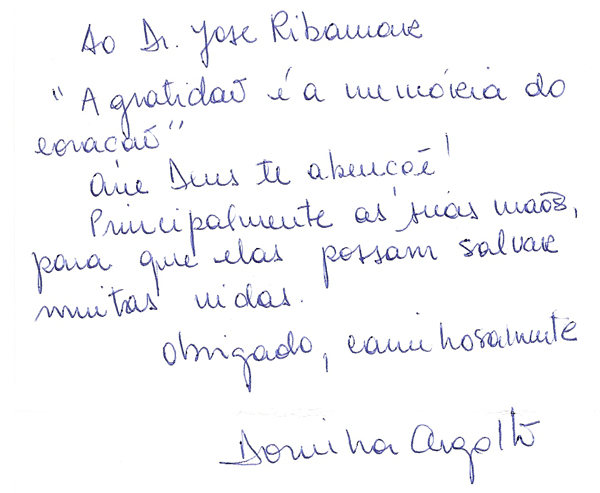 Ao Dr. Jose Ribamar
"A gratidaõ é a memória do
coraçaõ"
Que Deus te abençoe!
Principalmente as suas maõs,
para que elas possam salvar
muitas vidas.
Obrigado, carinhosamente
Dorinha Argollo